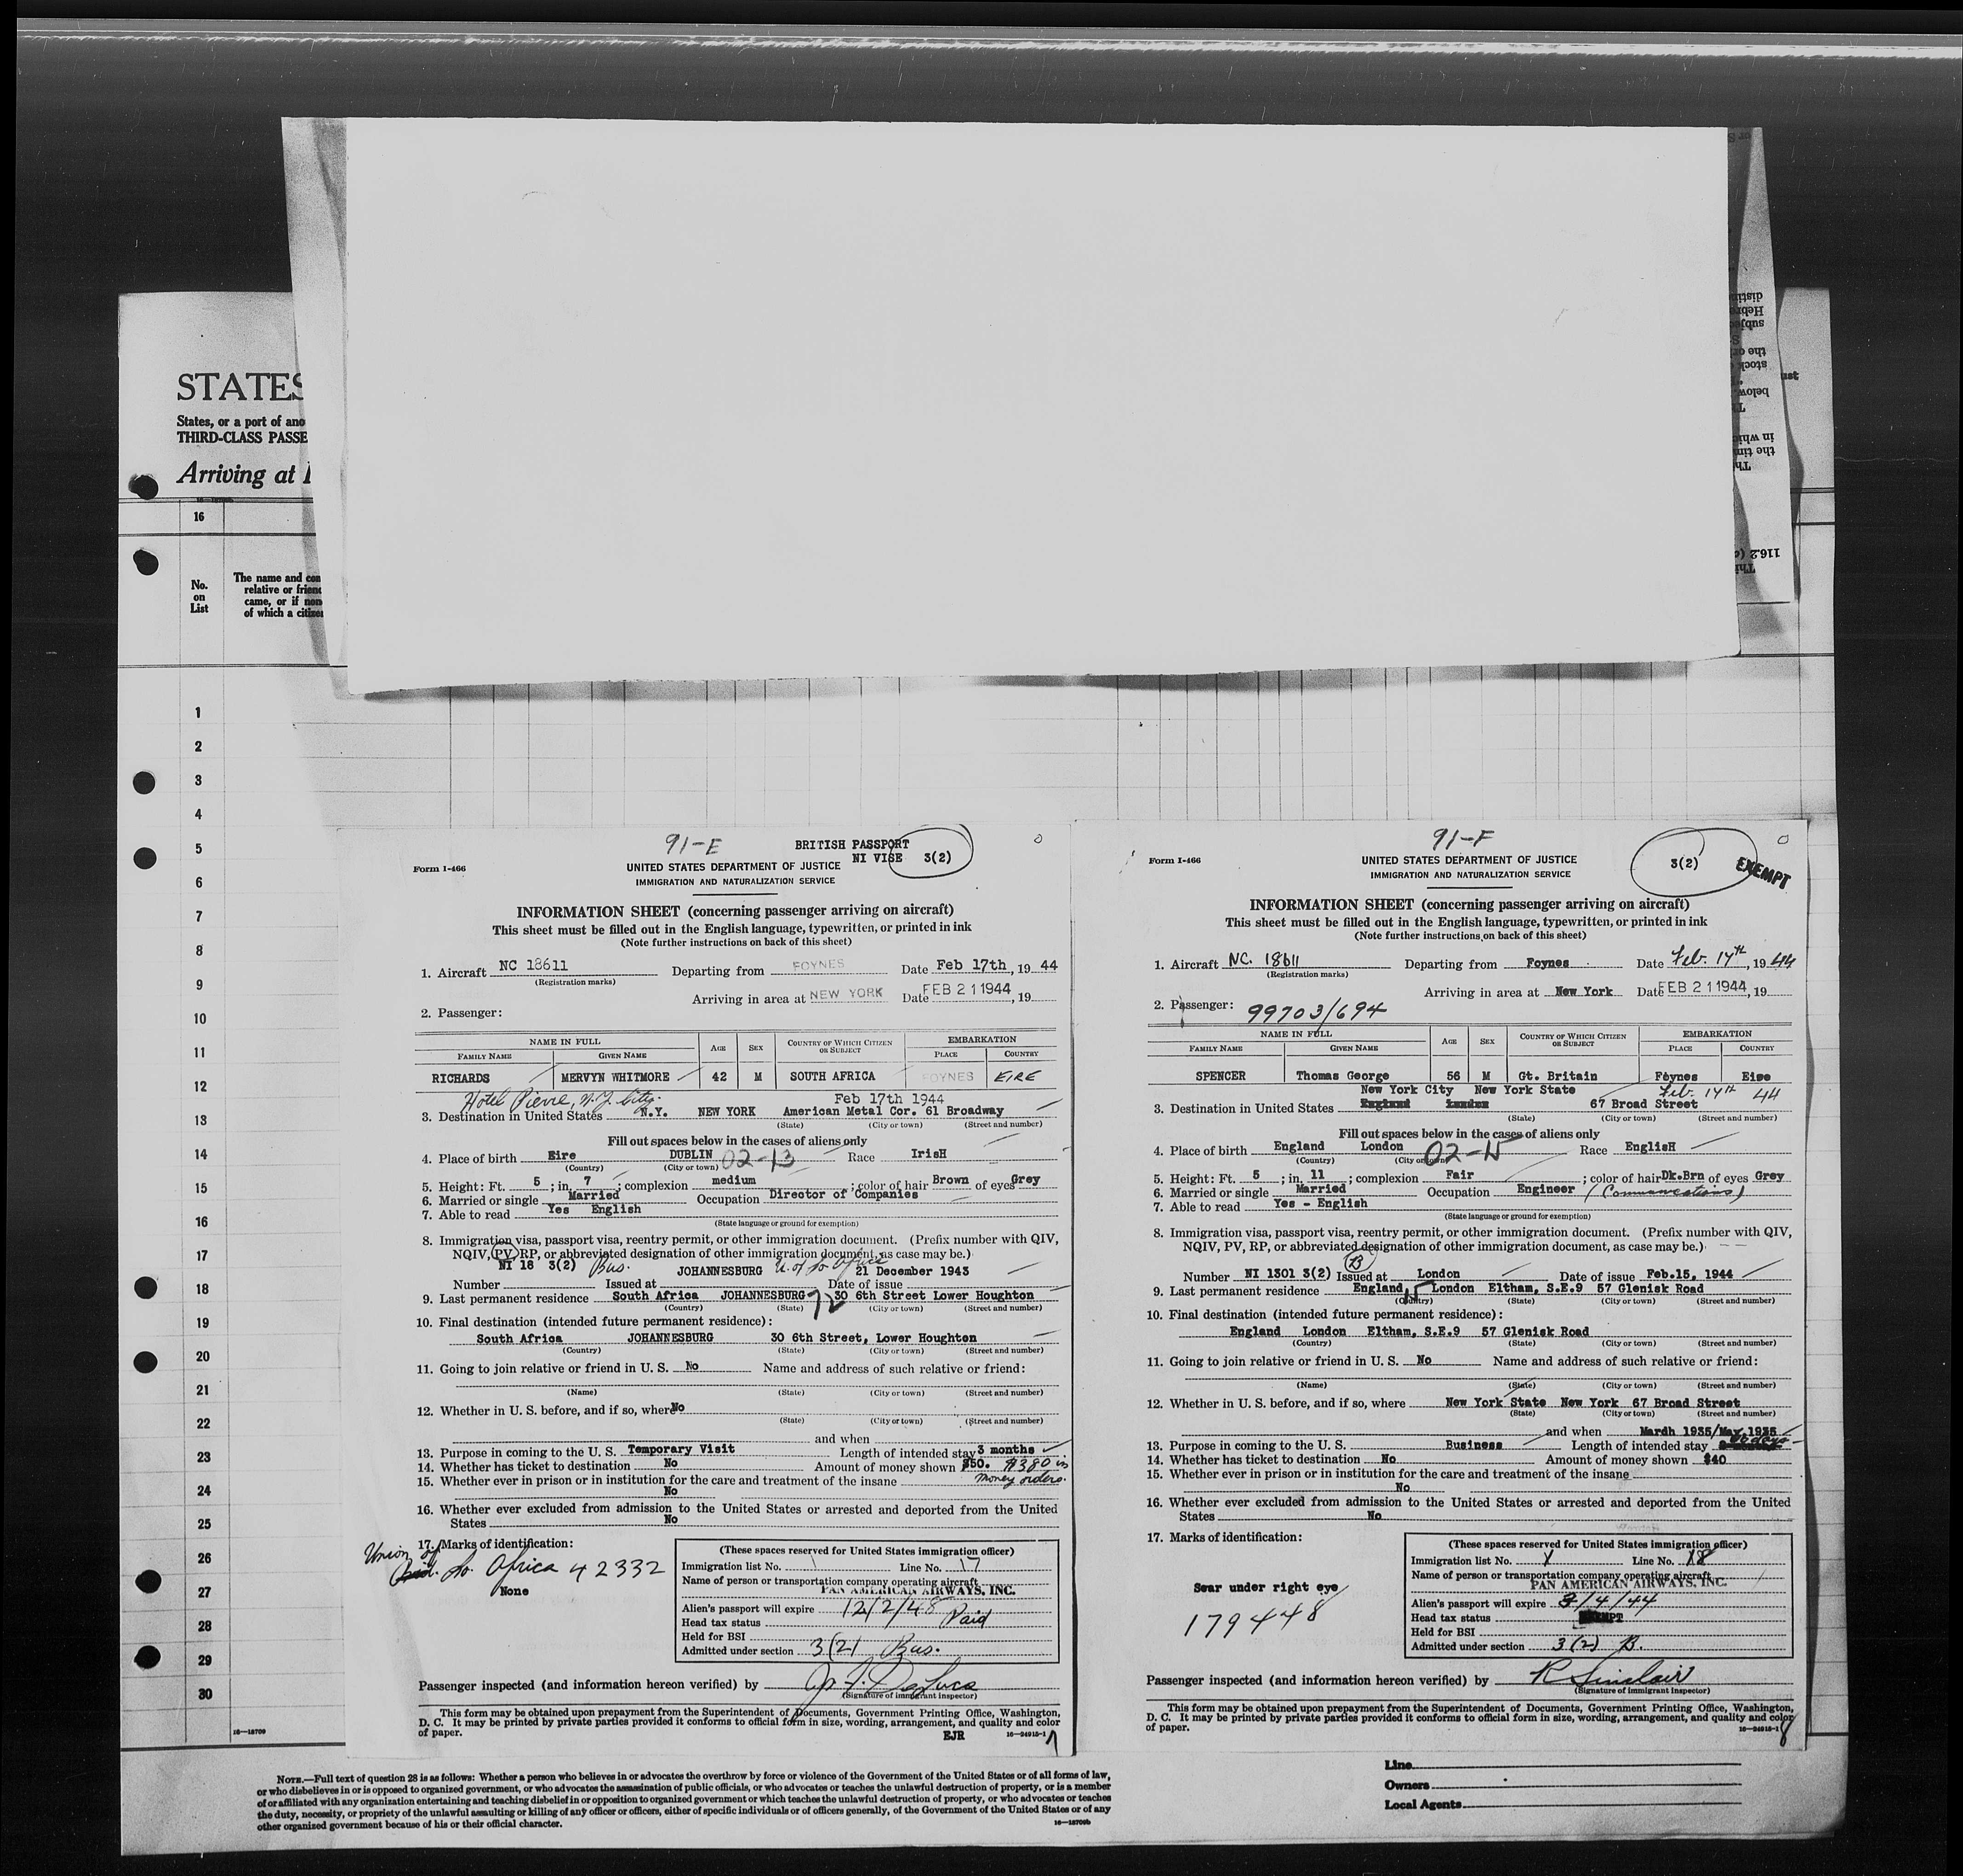 STATES
States, or a port of ano
THIRD-CLASS PASSE
Arriving at
16
No.
on
List
The name and com
relative or friend
came, or if non
of which a citize
1
2
3
4
5
6
7
8
9
10
11
12
13
14
15
16
17
18
19
20
21
22
23
24
25
26
27
28
29
30
16—18709
91-E
BRITISH PASSPORT
NI VISE 3(2)
Form I-466
UNITED STATES DEPARTMENT OF JUSTICE
IMMIGRATION AND NATURALIZATION SERVICE
INFORMATION SHEET (concerning passenger arriving on aircraft)
This sheet must be filled out in the English language, typewritten, or printed in ink
(Note further instructions on back of this sheet)
1. Aircraft NC 18611 Departing from FOYNES Date Feb 17th, 19 44
(Registration marks)
Arriving in area at NEW YORK Date FEB 21 1944, 19
2. Passenger:
NAME IN FULL AGE SEX COUNTRY OF WHICH CITIZEN OR SUBJECT EMBARKATION
FAMILY NAME GIVEN NAME PLACE COUNTRY
RICHARDS MERVYN WHITMORE 42 M SOUTH AFRICA FOYNES EIRE
Hotel Pierre, N.Y. City. Feb 17th 1944
3. Destination in United States N.Y. NEW YORK American Metal Cor. 61 Broadway
(State) (City or town) (Street and number)
Fill out spaces below in the cases of aliens only
4. Place of birth Eire DUBLIN 02-13 Race IrisH
(Country) (City or town)
5. Height: Ft. 5 ; in. 7 ; complexion medium ; color of hair Brown of eyes Grey
6. Married or single Married Occupation Director of Companies
7. Able to read Yes English
(State language or ground for exemption)
8. Immigration visa, passport visa, reentry permit, or other immigration document. (Prefix number with QIV,
NQIV, PV, RP, or abbreviated designation of other immigration document, as case may be.)
NI 18 3(2) Bus. JOHANNESBURG U. of So Africa 21 December 1943
Number Issued at Date of issue
9. Last permanent residence South Africa JOHANNESBURG 72 30 6th Street Lower Houghton
(Country) (State) (City or town) (Street and number)
10. Final destination (intended future permanent residence):
South Africa JOHANNESBURG 30 6th Street, Lower Houghton
(Country) (State) (City or town) (Street and number)
11. Going to join relative or friend in U. S. No Name and address of such relative or friend:
(Name) (State) (City or town) (Street and number)
12. Whether in U. S. before, and if so, where No
(State) (City or town) (Street and number)
and when
13. Purpose in coming to the U. S. Temporary Visit Length of intended stay 3 months
14. Whether has ticket to destination No Amount of money shown $50. $380 in
15. Whether ever in prison or in institution for the care and treatment of the insane money orders.
No
16. Whether ever excluded from admission to the United States or arrested and deported from the United
States No
17. Marks of identification:
Union of
So. Africa 42332
None
(These spaces reserved for United States immigration officer)
Immigration list No. 1 Line No. 17
Name of person or transportation company operating aircraft
PAN AMERICAN AIRWAYS, INC.
Alien's passport will expire 12/2/48
Head tax status Paid
Held for BSI
Admitted under section 3(2) Bus.
Passenger inspected (and information hereon verified) by
(Signature of immigrant inspector)
This form may be obtained upon prepayment from the Superintendent of Documents, Government Printing Office, Washington,
D. C. It may be printed by private parties provided it conforms to official form in size, wording, arrangement, and quality and color
of paper. EJR 16—24915-1
91-F
3(2)
EXEMPT
Form I-466
UNITED STATES DEPARTMENT OF JUSTICE
IMMIGRATION AND NATURALIZATION SERVICE
INFORMATION SHEET (concerning passenger arriving on aircraft)
This sheet must be filled out in the English language, typewritten, or printed in ink
(Note further instructions on back of this sheet)
1. Aircraft NC. 18611 Departing from Foynes Date Feb. 17th, 19 44
(Registration marks)
Arriving in area at New York Date FEB 21 1944, 19
2. Passenger: 99703/694
NAME IN FULL AGE SEX COUNTRY OF WHICH CITIZEN OR SUBJECT EMBARKATION
FAMILY NAME GIVEN NAME PLACE COUNTRY
SPENCER Thomas George 56 M Gt. Britain Foynes Eire
New York City New York State Feb. 17th 44
3. Destination in United States England London 67 Broad Street
(State) (City or town) (Street and number)
Fill out spaces below in the cases of aliens only
4. Place of birth England London 02-15 Race EnglisH
(Country) (City or town)
5. Height: Ft. 5 ; in. 11 ; complexion Fair ; color of hair Dk.Brn of eyes Grey
6. Married or single Married Occupation Engineer (Communications)
7. Able to read Yes - English
(State language or ground for exemption)
8. Immigration visa, passport visa, reentry permit, or other immigration document. (Prefix number with QIV,
NQIV, PV, RP, or abbreviated designation of other immigration document, as case may be.)
B
Number NI 1301 3(2) Issued at London Date of issue Feb.15, 1944
9. Last permanent residence England London Eltham, S.E.9 57 Glenisk Road
(Country) (State) (City or town) (Street and number)
10. Final destination (intended future permanent residence):
England London Eltham, S.E.9 57 Glenisk Road
(Country) (State) (City or town) (Street and number)
11. Going to join relative or friend in U. S. No Name and address of such relative or friend:
(Name) (State) (City or town) (Street and number)
12. Whether in U. S. before, and if so, where New York State New York 67 Broad Street
(State) (City or town) (Street and number)
and when Mardh 1935/May 1935
13. Purpose in coming to the U. S. Business Length of intended stay 60 days
14. Whether has ticket to destination No Amount of money shown $40
15. Whether ever in prison or in institution for the care and treatment of the insane
No
16. Whether ever excluded from admission to the United States or arrested and deported from the United
States No
17. Marks of identification:
Scar under right eye
179448
(These spaces reserved for United States immigration officer)
Immigration list No. 1 Line No. 18
Name of person or transportation company operating aircraft
PAN AMERICAN AIRWAYS, INC.
Alien's passport will expire 8/4/44
Head tax status EXEMPT
Held for BSI
Admitted under section 3(2) B.
Passenger inspected (and information hereon verified) by R Sinclair
(Signature of immigrant inspector)
This form may be obtained upon prepayment from the Superintendent of Documents, Government Printing Office, Washington,
D. C. It may be printed by private parties provided it conforms to official form in size, wording, arrangement, and quality and color
of paper. 16—24915-1
NOTE.—Full text of question 28 is as follows: Whether a person who believes in or advocates the overthrow by force or violence of the Government of the United States or of all forms of law,
or who disbelieves in or is opposed to organized government, or who advocates the assassination of public officials, or who advocates or teaches the unlawful destruction of property, or is a member
of or affiliated with any organization entertaining and teaching disbelief in or opposition to organized government or which teaches the unlawful destruction of property, or who advocates or teaches
the duty, necessity, or propriety of the unlawful assaulting or killing of any officer or officers, either of specific individuals or of officers generally, of the Government of the United States or of any
other organized government because of his or their official character.
16—18709b
Line
Owners
Local Agents